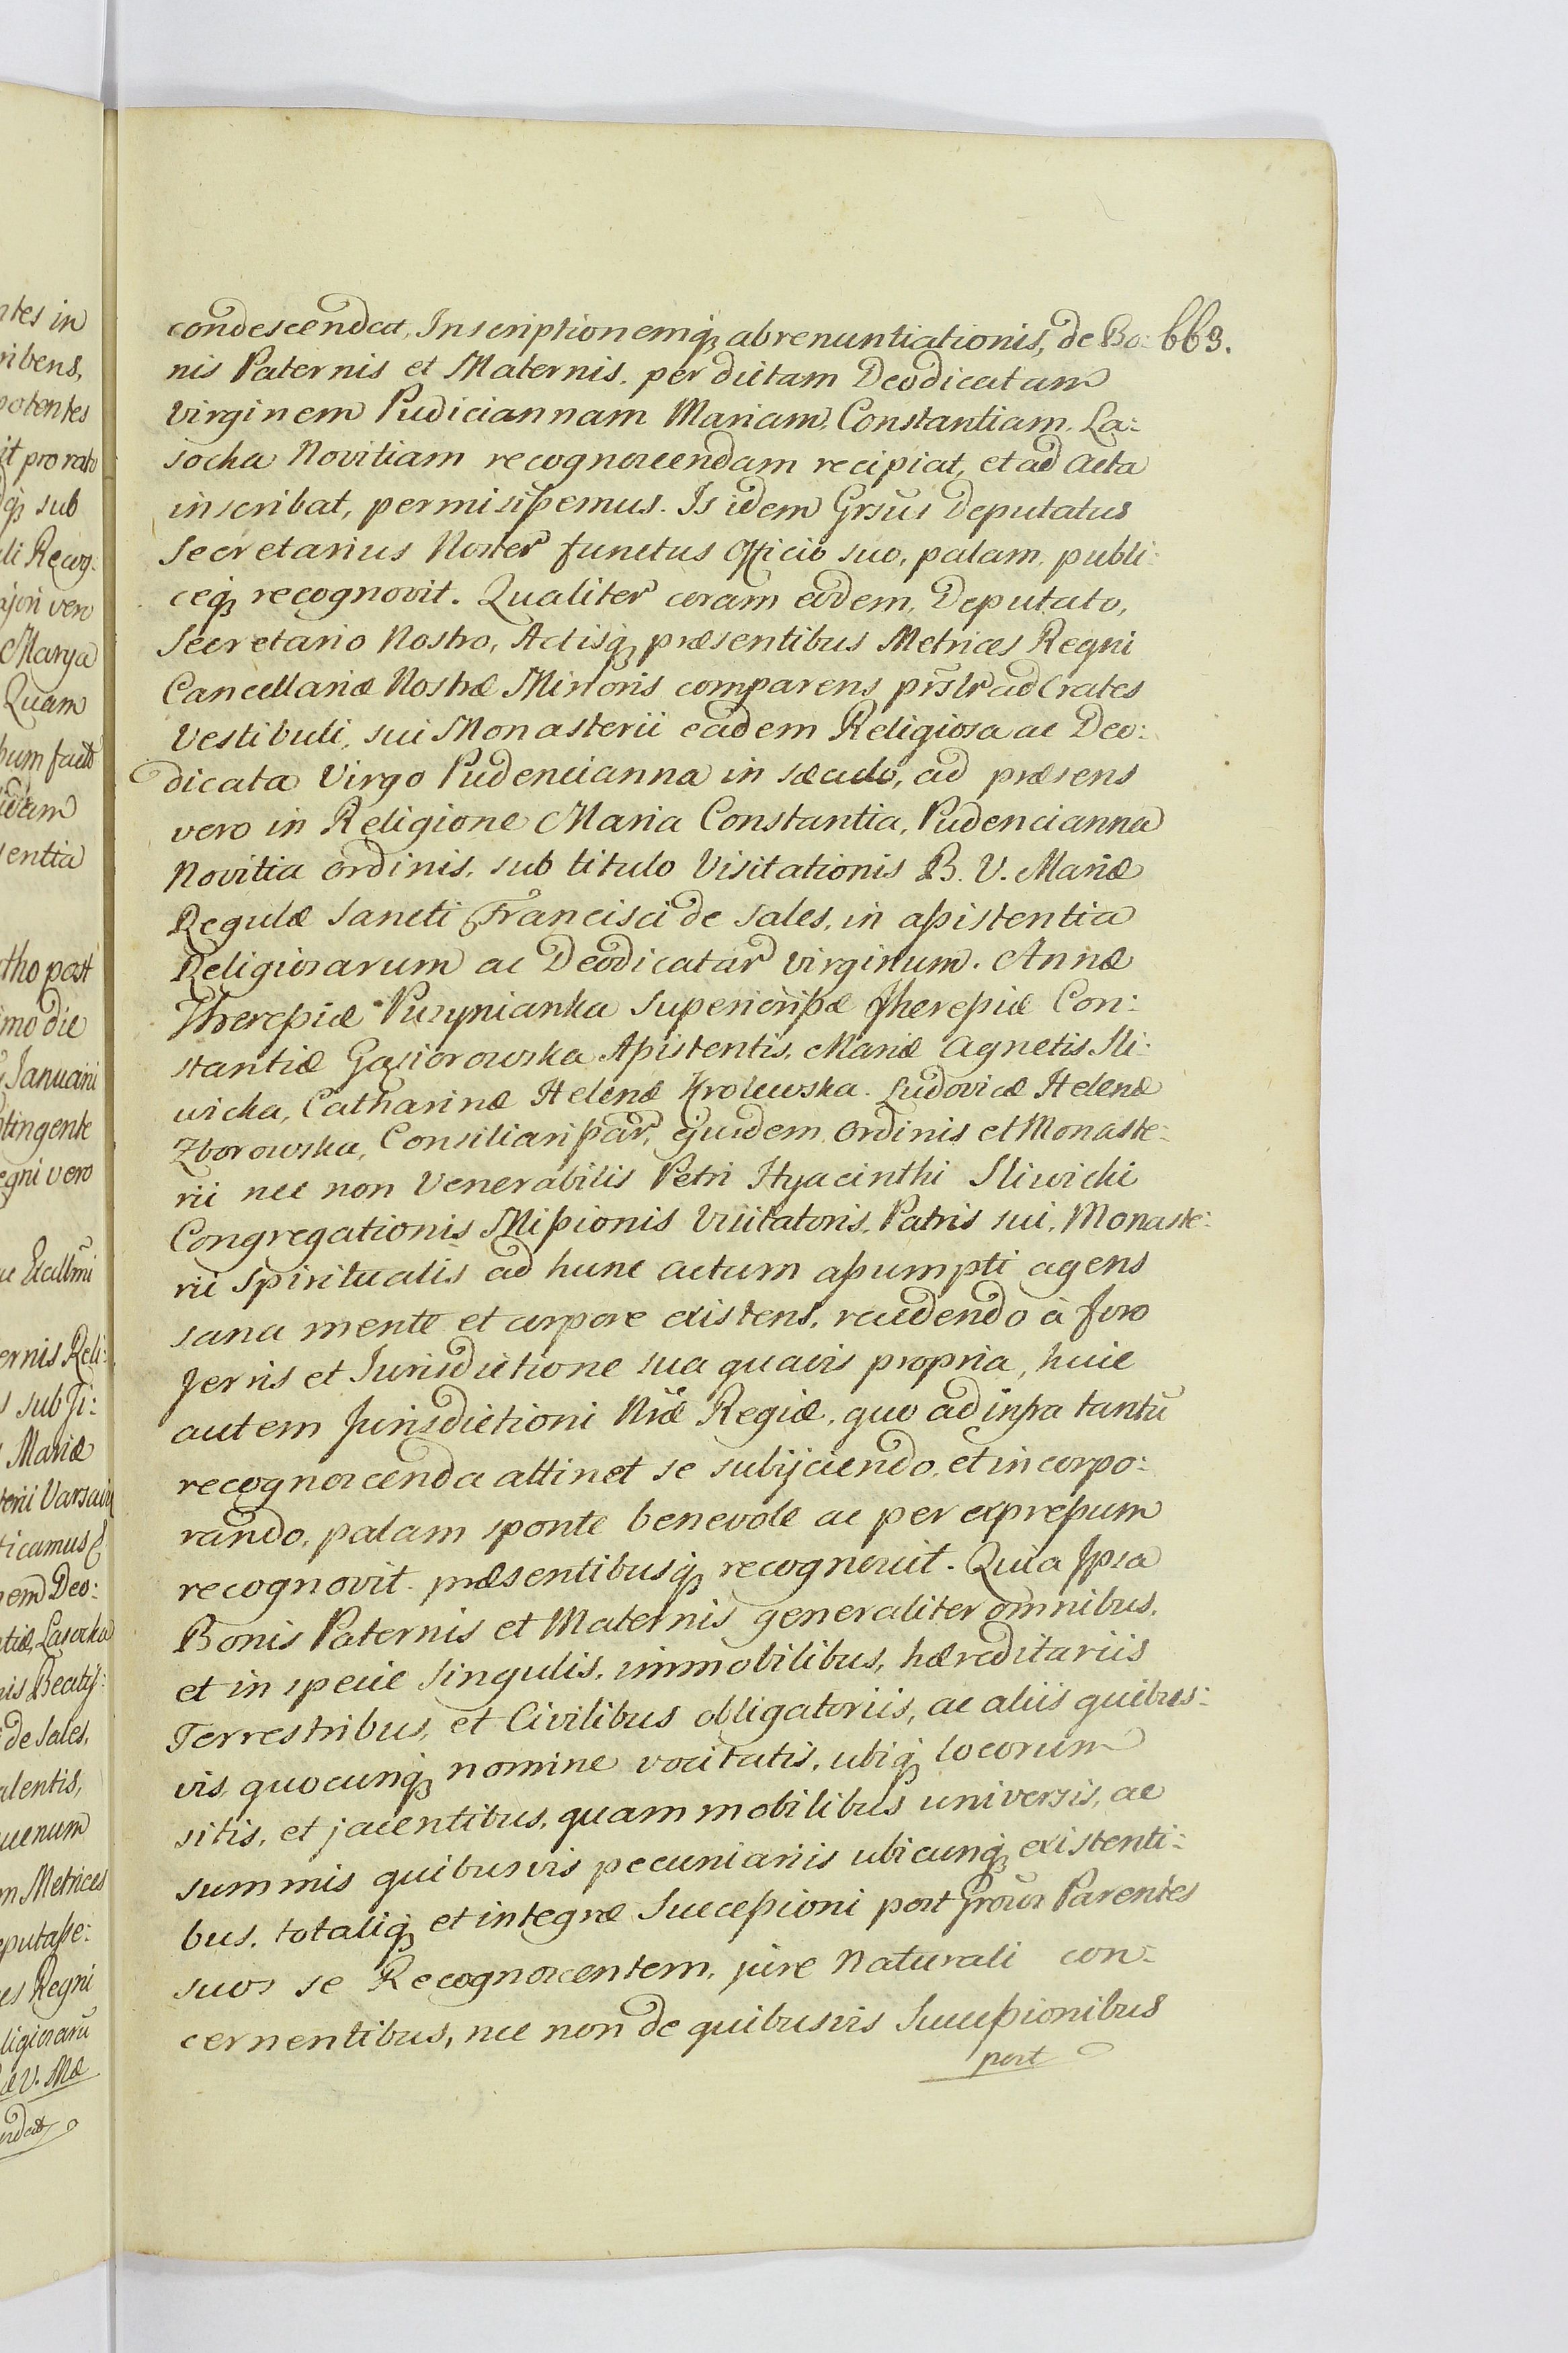 condescendat, Inscriptionemq; abrenuntiationis, de Bo: 663.
nis Paternis et Maternis, per dictam Deodicatam
Virginem Pudiciannam Mariam, Constantiam, La:
socka Novitiam recognoscendam recipiat, et ad Acta
inscribat, permisißemus. Is idem Grsus Deputatus
Secretarius Noster functus Officio suo, palam, publi:
ceq; recognovit. Qualiter coram eodem, Deputato,
Secretario Nostro, Actisq; præsentibus Metrices Regni
Cancellariæ Nostræ Minoris comparens prslr ad Crates
Vestibuli, sui Monasterii eadem Religiosa ac Deo:
dicata Virgo Pudencianna in sæculo, ad præsens
vero in Religione Maria Constantia, Pudencianna
Novitia ordinis, sub titulo Visitationis B. V. Mariæ
Regulæ Sancti Francisci de Sales, in aßistentia
Religiosarum ac Deodicatar Virginum. Annæ
Thereßiæ Puzynianka Superiorißæ Thereßiæ Con:
stantiæ Gąsiorowska Aßistentis, Mariæ Agnetis Sli:
wicka, Catharinæ Helenæ Krolewska. Ludovicæ Helenæ
Zborowska, Consiliarißar, ejusdem Ordinis et Monaste:
rii nec non Venerabilis Petri Hyacinthi Sliwicki
Congregationis Mißionis Visitatoris, Patris sui, Monaste:
rii Spiritualis ad hunc actum aßumpti agens
sana mente et corpore existens, recedendo à foro
Terris et Jurisdictione sua quavis propria, huic
autem Jurisdictioni Nræ Regiæ, quo ad infra tantū
recognoscenda attinet se subijciendo, et incorpo:
rando, palam sponte benevole ac per expreßum
recognovit præsentibusq; recognovit. Quia Ipsa
Bonis Paternis et Maternis generaliter omnibus,
et in specie Singulis, immobilibus, hæreditariis
Terrestribus, et Civilibus obligatoriis, ac aliis quibus:
vis, quocunq; nomine vocitatis, ubiq; locorum
sitis, et jacentibus, quam mobilibus universis, ac
summis quibusvis pecuniariis ubicunq; existenti:
bus, totaliq; et integræ Succeßioni post Grosos Parentes
suos se Recognoscentem, jure Naturali con:
cernentibus, nec non de quibusvis Succeßionibus
post